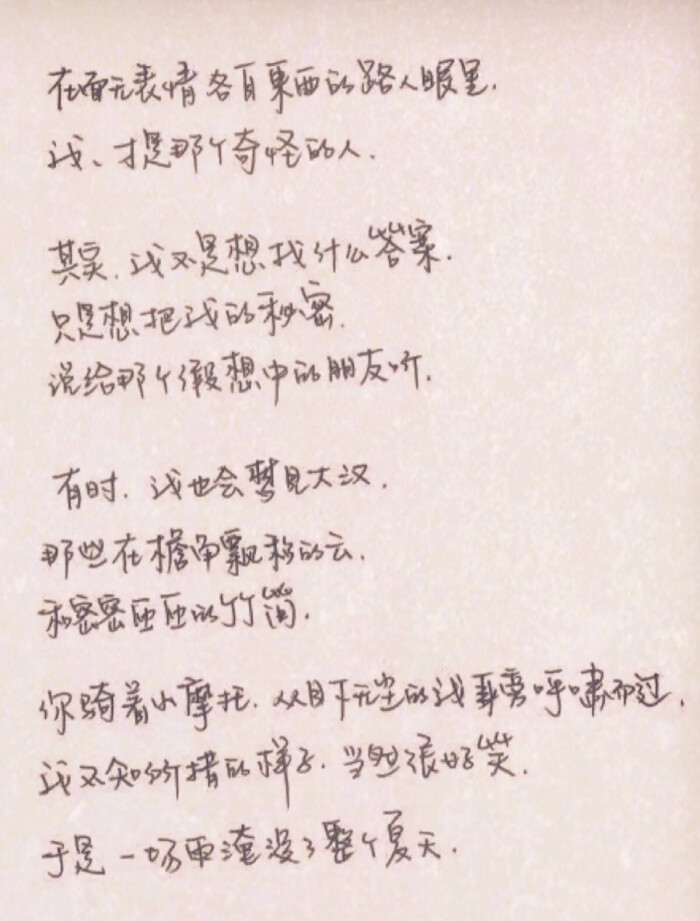 在面无表情各自東西的路人眼里.
我、才是那个奇怪的人.
其实.我不是想找什么答案.
只是想把我的秘密.
说给那个假想中的朋友听.
有时.我也会梦见大汉.
那些在檐角飘移的云.
和密密匝匝的竹简.
你骑着小摩托.从目下无尘的我身旁呼啸而过.
我不知所措的样子.当然很好笑.
于是一场雨淹没了整个夏天.